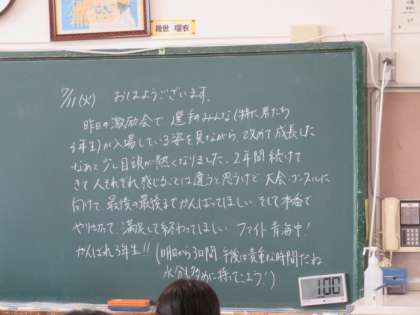 穂世 瑠衣
7/11(火) おはようございます。
昨日の激励会で 選手のみんな(特に君たち
3年生)が入場している姿を見ながら、改めて成長した
なあと少し目頭が熱くなりました。2年間続けて
きて人それぞれ感じることは違うと思うけど 大会・コンクールに
向けて最後の最後までがんばってほしい。そして本番で
やり切って、満足して終わってほしい ファイト青海中!
がんばれ3年生!!(明日から3日間、午後は貴重な時間だね
水分多めに持ってこよう!)
100